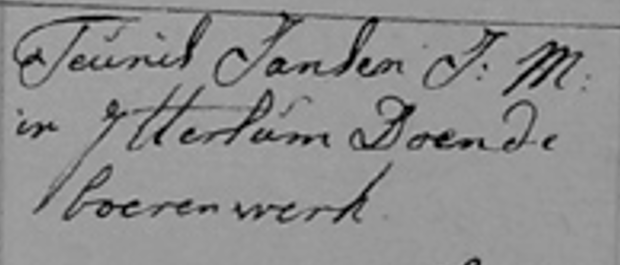 Teunis Jansen J: M:
in Ytterlum Doende
boerenwerk